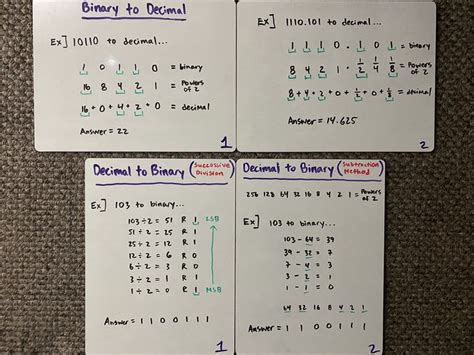 Binary to Decimal
Ex] 10110 to decimal...
1 0 1 1 0 = binary
16 8 4 2 1 = Powers of 2
16 + 0 + 4 + 2 + 0 = decimal
Answer = 22
1
Ex] 1110.101 to decimal...
1 1 1 0 . 1 0 1 = binary
8 4 2 1 . 1/2 1/4 1/8 = Powers of 2
8 + 4 + 2 + 0 + 1/2 + 0 + 1/8 = decimal
Answer = 14.625
2
Decimal to Binary (Successive Division)
Ex] 103 to binary...
103 ÷ 2 = 51 R 1 LSB
51 ÷ 2 = 25 R 1
25 ÷ 2 = 12 R 1
12 ÷ 2 = 6 R 0
6 ÷ 2 = 3 R 0
3 ÷ 2 = 1 R 1
1 ÷ 2 = 0 R 1 MSB
Answer = 1 1 0 0 1 1 1
1
Decimal to Binary (Subtraction Method)
256 128 64 32 16 8 4 2 1 = Powers of 2
Ex] 103 to binary...
103 - 64 = 39
39 - 32 = 7
7 - 4 = 3
3 - 2 = 1
1 - 1 = 0
64 32 16 8 4 2 1
Answer = 1 1 0 0 1 1 1
2